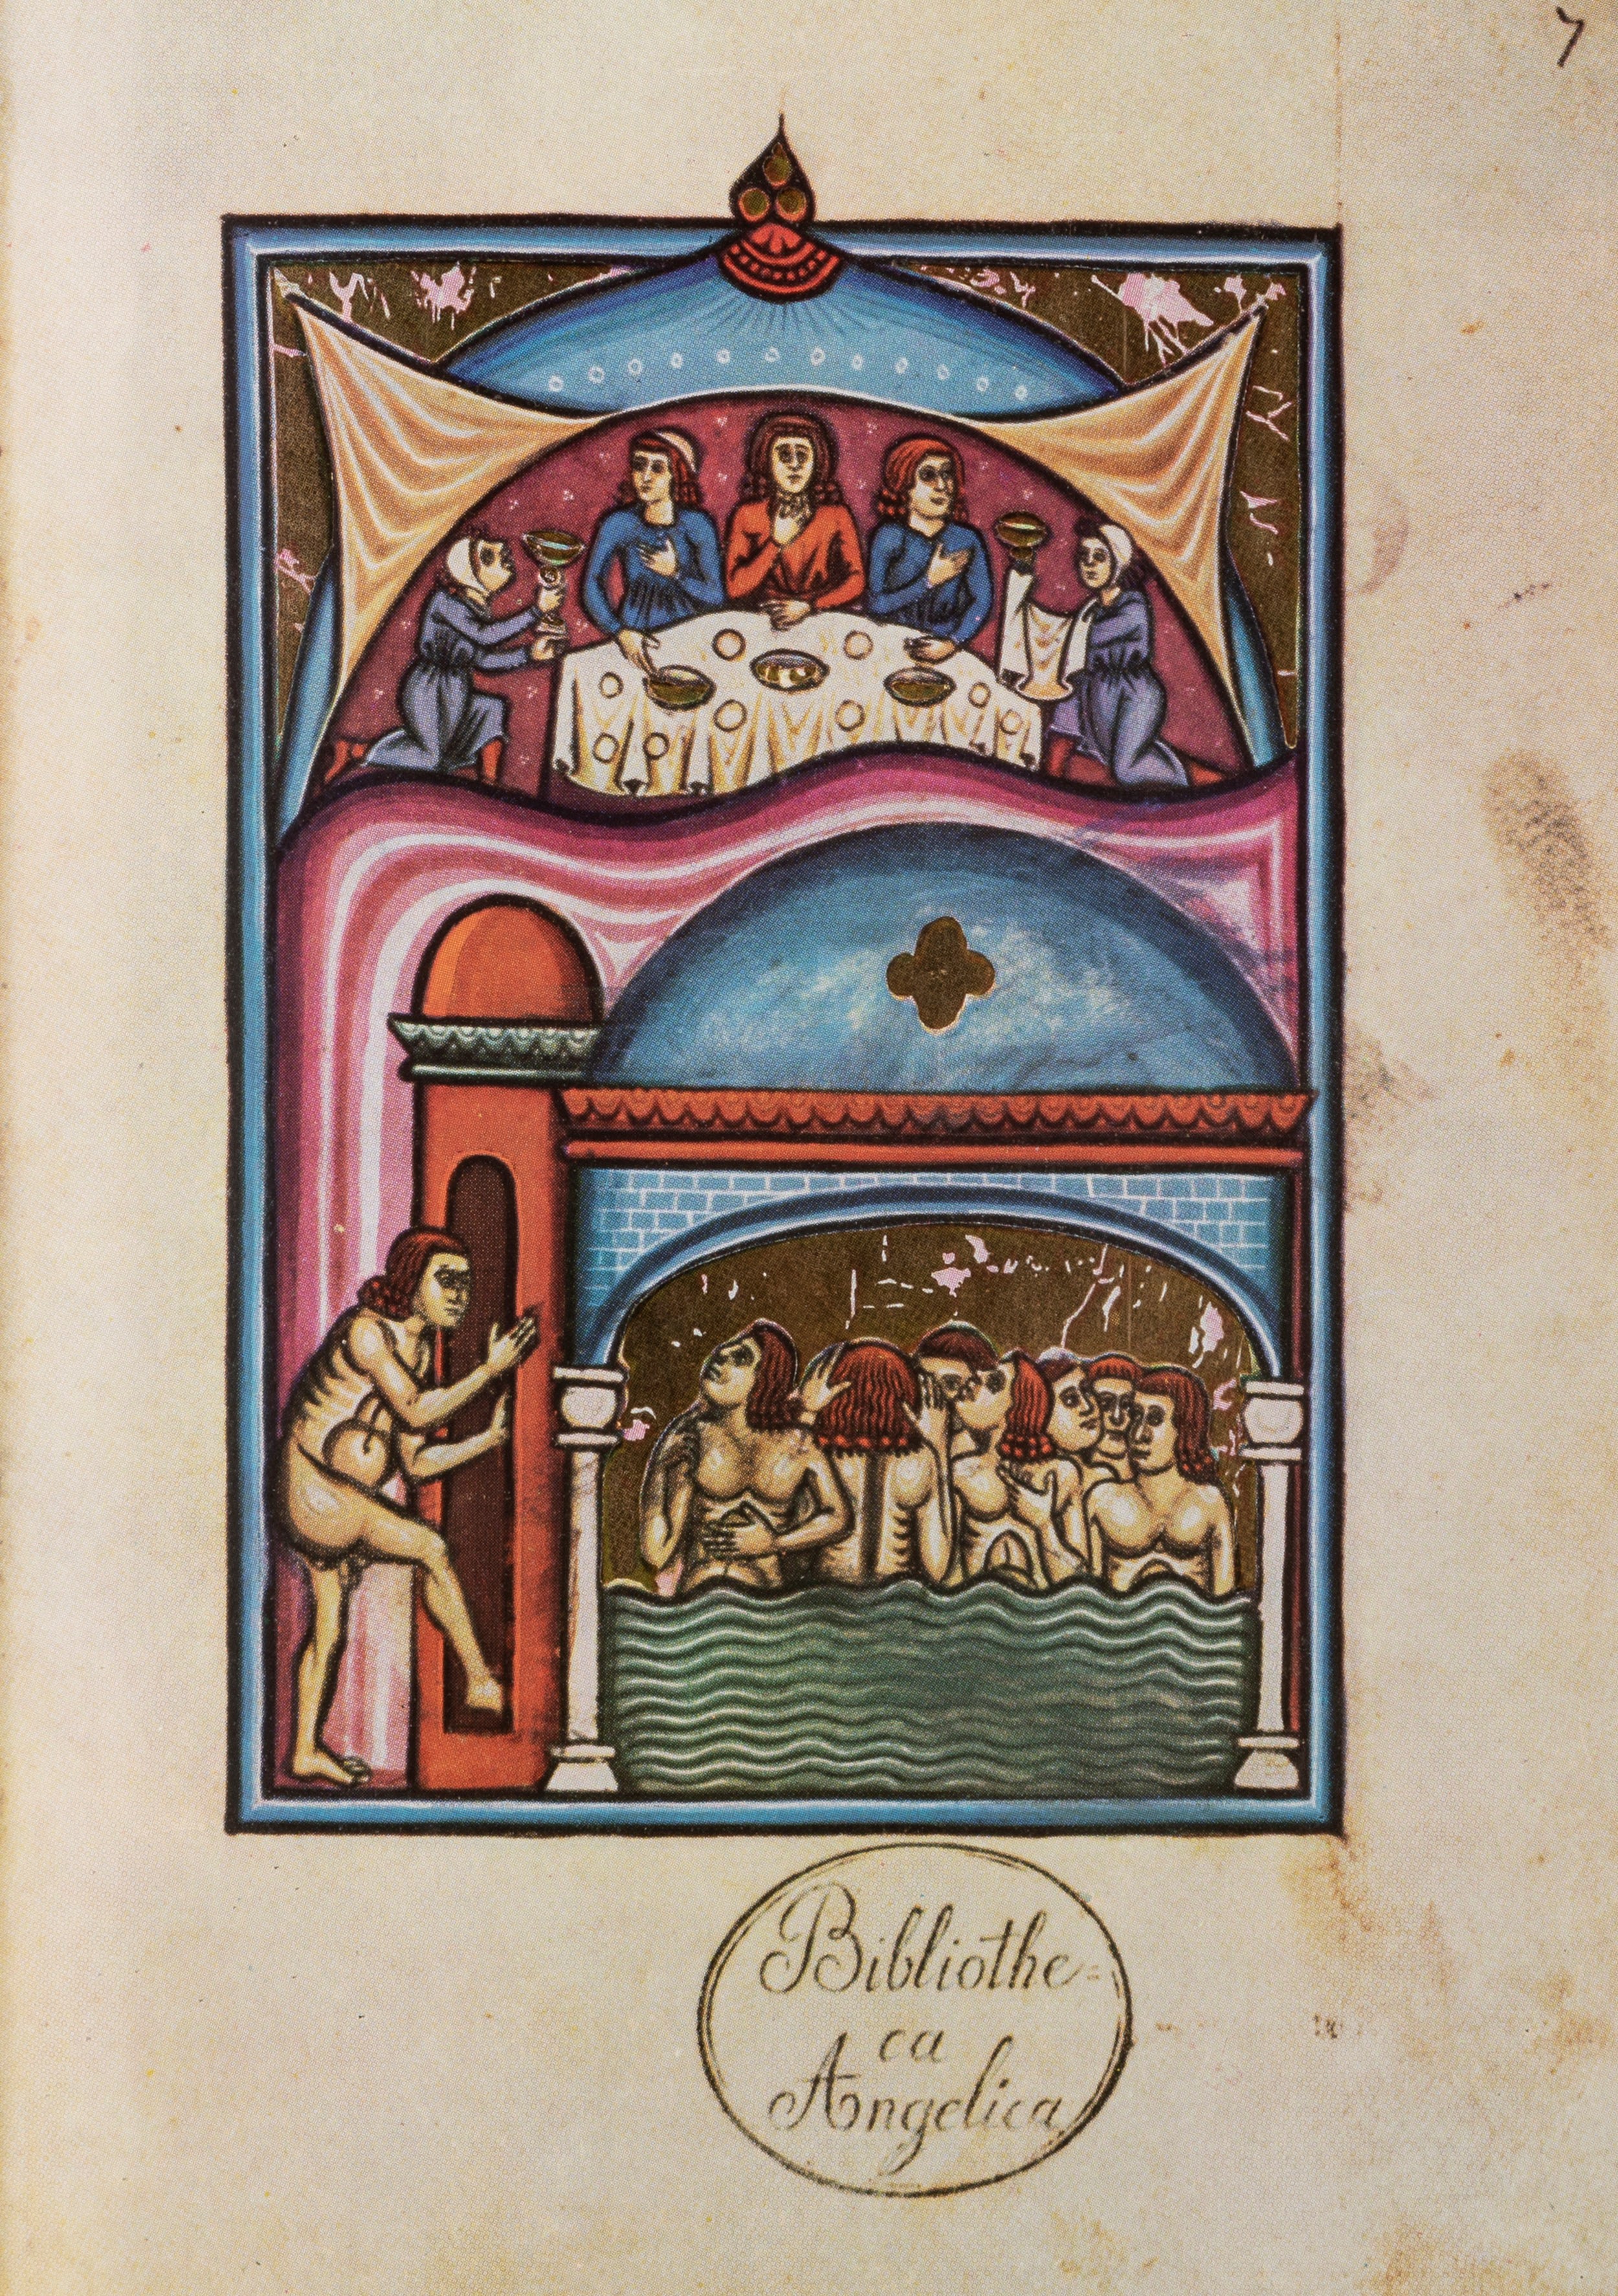 7
Bibliothe=
ca
Angelica